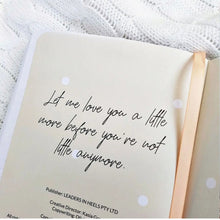 Let me love you a little
more before you're not
little anymore.
Publisher: LEADERS IN HEELS PTY LTD
Creative Director: Kasia
Copywriting: